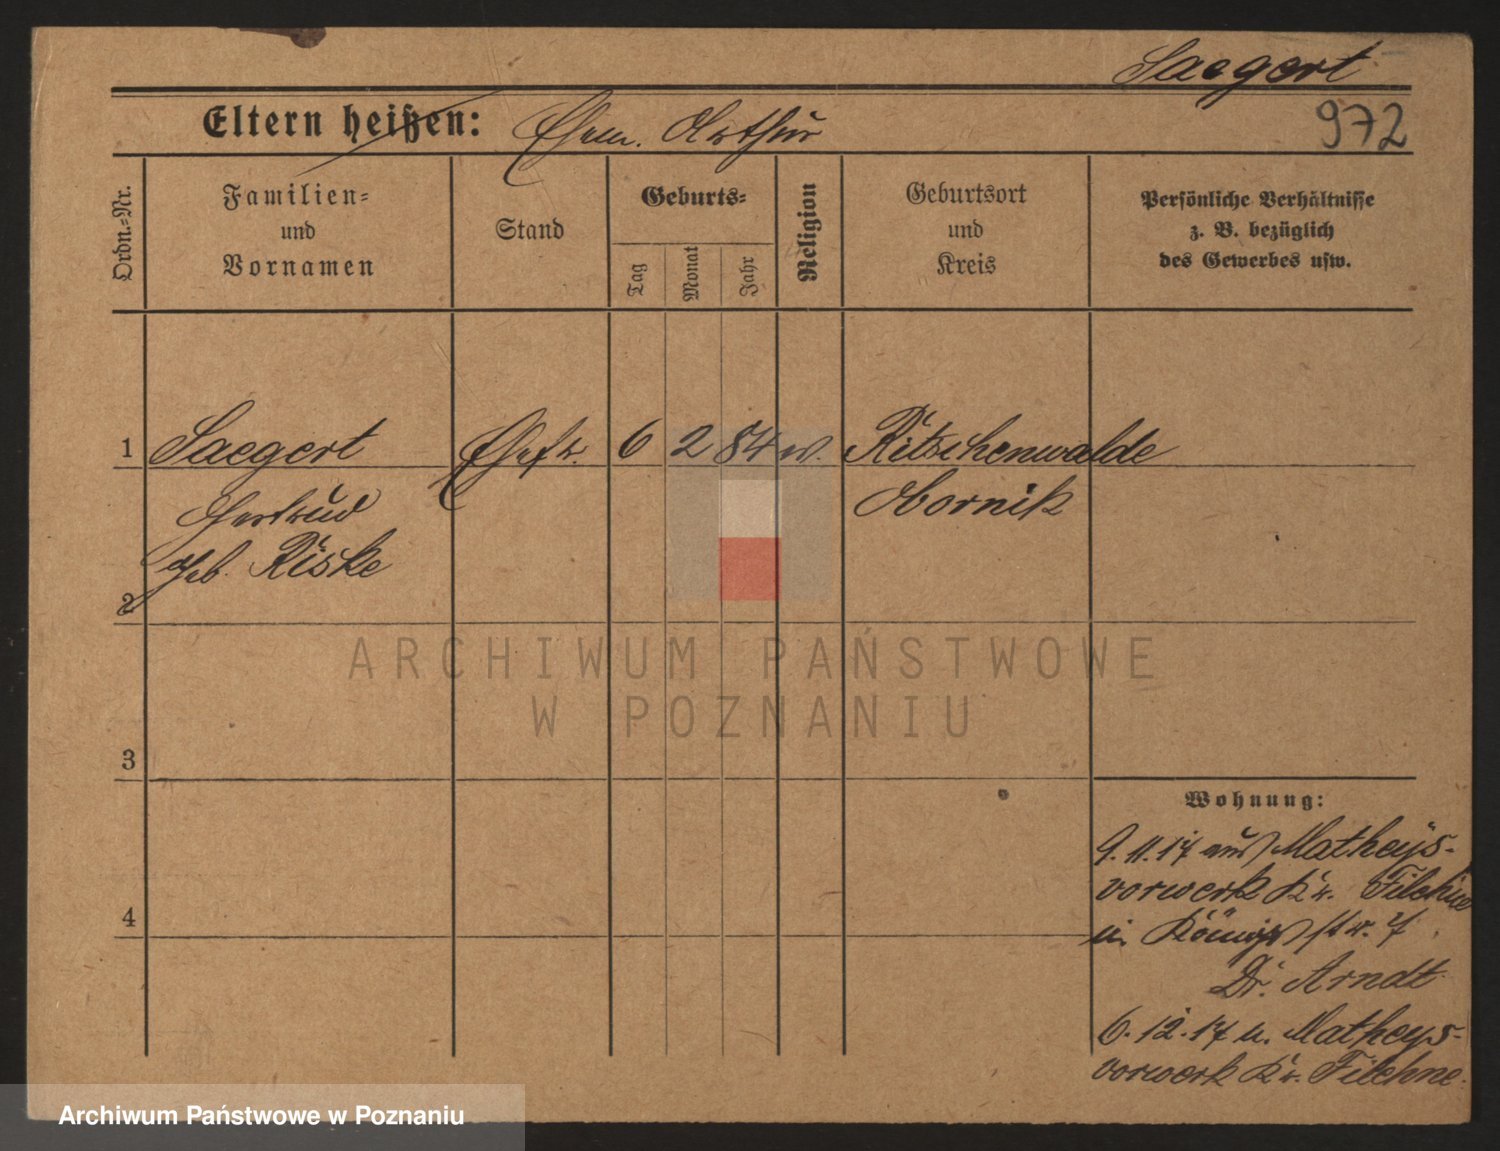 Saegert
Eltern heißen: Ehem. Arthur
972
Ordn.-Nr.
Familien-
und
Vornamen
Stand
Geburts-
Tag
Monat
Jahr
Religion
Geburtsort
und
Kreis
Persönliche Verhältnisse
z. B. bezüglich
des Gewerbes usw.
1 Saegert Ehefr. 6 2 84 w. Ritschenwalde
Gertrud Obornik
geb. Riske
2
ARCHIWUM PAŃSTWOWE
W POZNANIU
3
Wohnung:
9.11.17 aus Matheys-
vorwerk Kr. Filehne
4
in Königstr. 7
Dr. Arndt
6.12.17 n. Matheys-
vorwerk Kr. Filehne
Archiwum Państwowe w Poznaniu